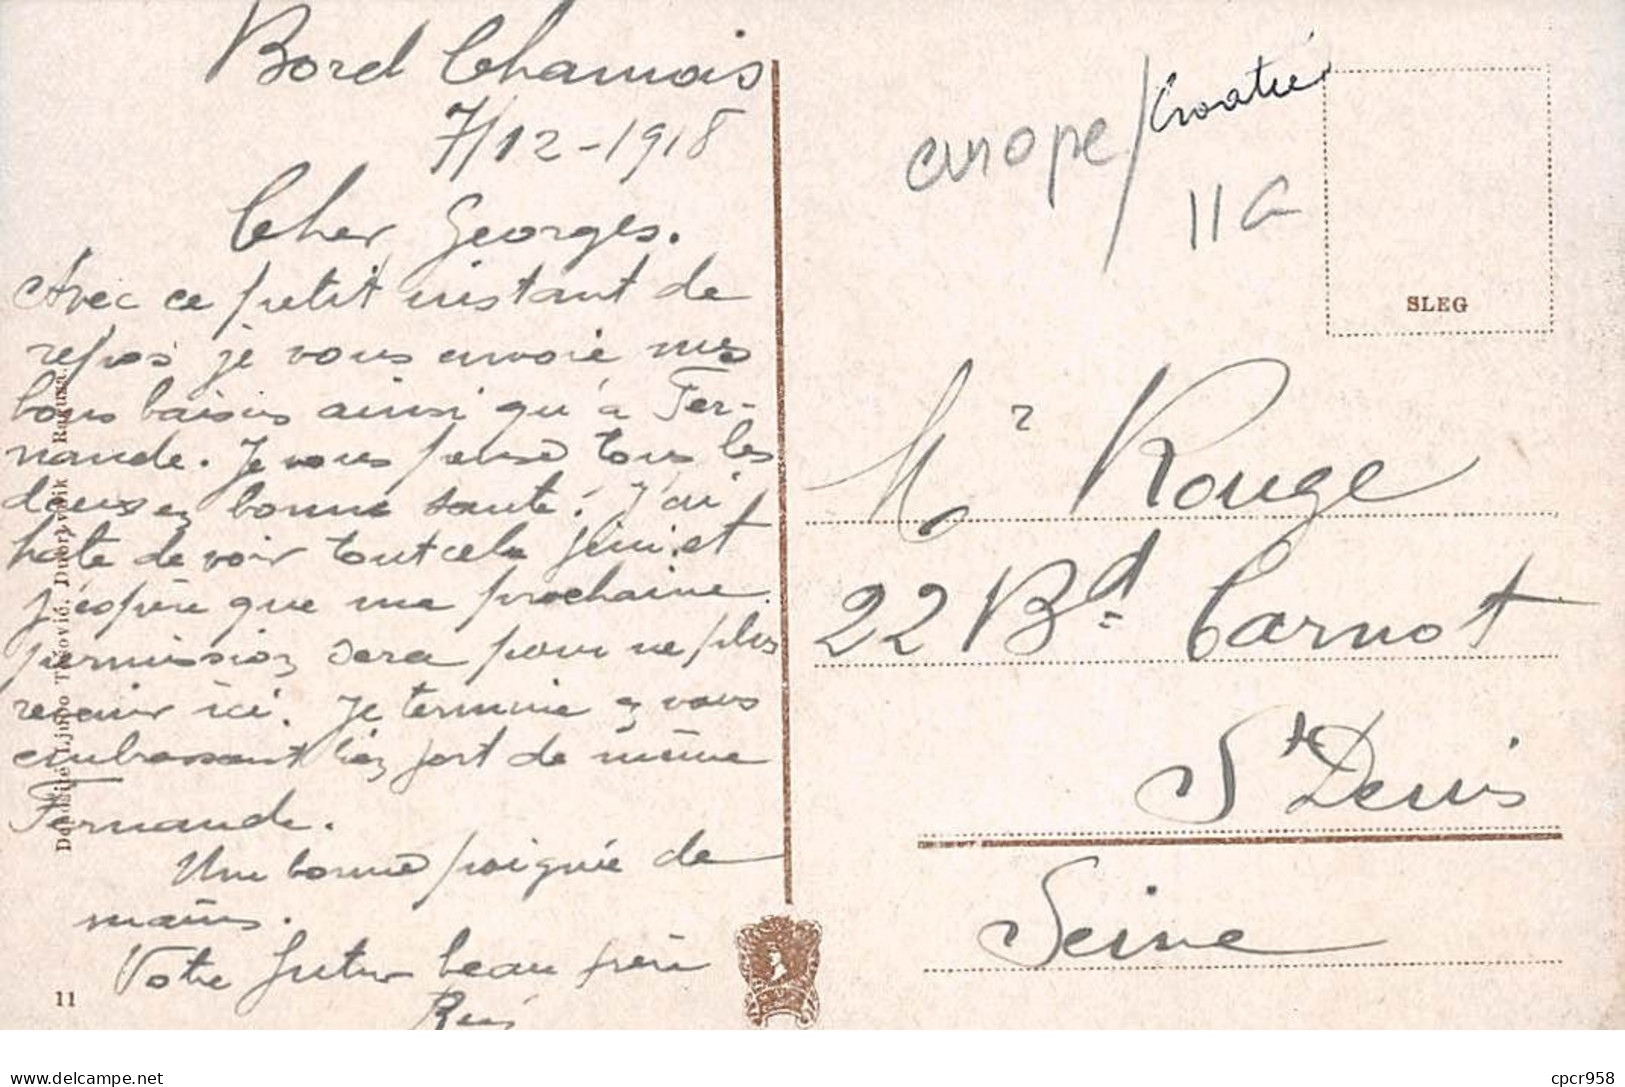 Bord Chamois
7/12-1918
Cher Georges.
Avec ce petit instant de
repos je vous envoie mes
bons baisers ainsi qu'à Fer-
nande. Je vous pense tous les
deux en bonne santé. J'ai
hate de voir tout cela fini et
j'espère que ma prochaine
permission sera pour ne plus
revenir ici. Je termine en vous
embrassant bien fort de même
Fernande.
Une bonne poignée de
mains.
Votre futur beau frère
11
europe/Croatie
11 G
SLEG
Mr Rouge
22 Bd Carnot
St Denis
Seine
delcampe.net
cpcr958